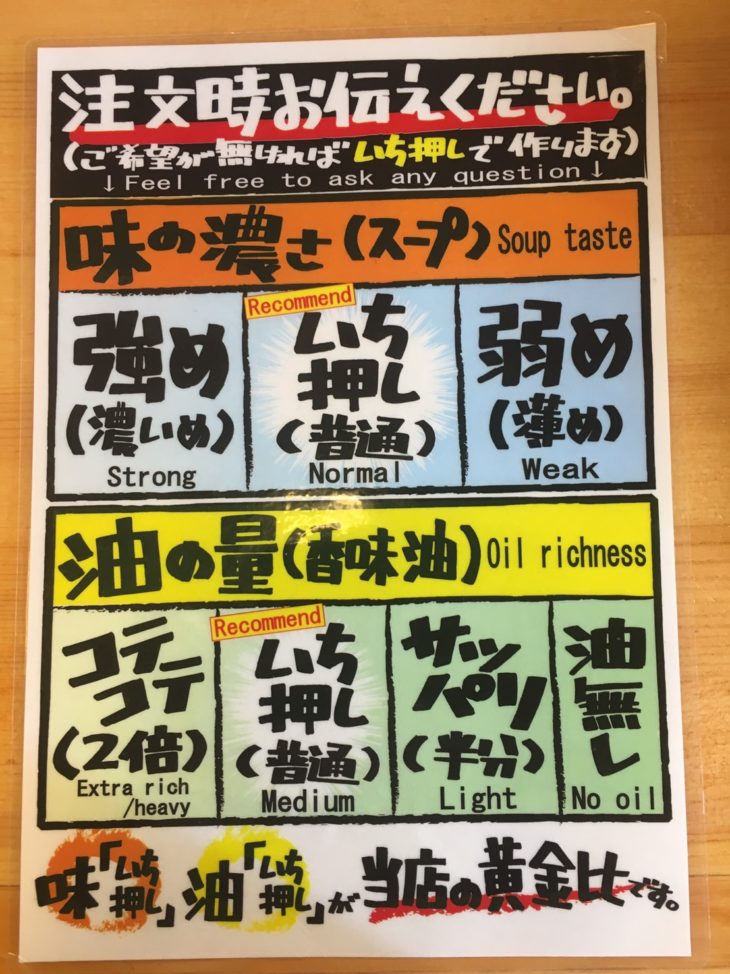 注文時お伝えください。
(ご希望が無ければいち押しで作ります)
↓Feel free to ask any question↓
味の濃さ(スープ) Soup taste
強め
(濃いめ)
Strong
Recommend
いち
押し
(普通)
Normal
弱め
(薄め)
Weak
油の量(香味油) Oil richness
コテ
コテ
(2倍)
Extra rich
/heavy
Recommend
いち
押し
(普通)
Medium
サッ
パリ
(半分)
Light
油無し
No oil
味「いち押し」油「いち押し」が当店の黄金比です。